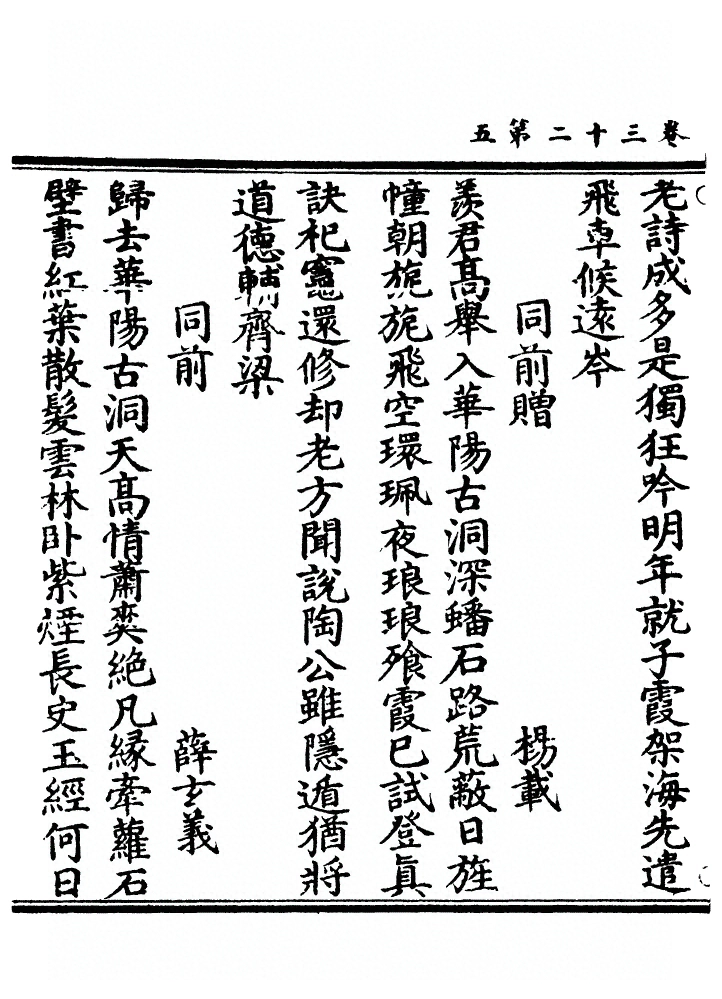 卷三十二第五
老詩成多是獨狂吟明年就子霞架海先遣
飛車候遠岑
同前贈　楊載
羨君高舉入華陽古洞深蟠石路荒蔽日旌
幢朝旎旎飛空環珮夜琅琅飱霞已試登眞
訣祀竈還修却老方聞說陶公雖隱遁猶將
道德輔齊梁
同前　薛玄義
歸去華陽古洞天高情蕭爽絶凡縁牽蘿石
壁書紅葉散髮雲林卧紫煙長史玉經何日